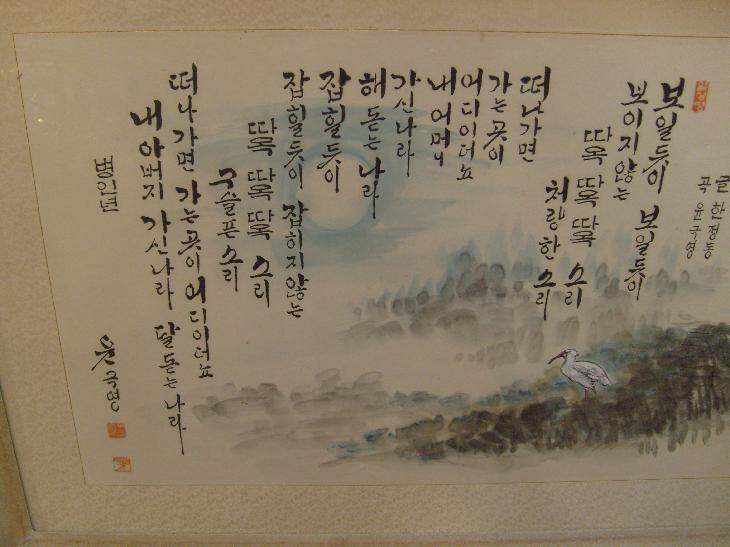 글 한정동
곡 윤극영
보일듯이 보일듯이
보이지않는
따옥 따옥 따옥 소리
처량한 소리
떠나가면
가는곳이
어디이더뇨
내어머니
가신나라
해돋는나라
잡힐듯이
잡힐듯이 잡히지않는
따옥 따옥 따옥 소리
구슬픈 소리
떠나가면 가는곳이 어디이더뇨
내아버지 가신나라 달돋는나라
병인년
윤극영